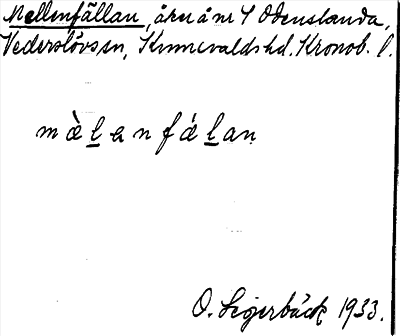 Mellenfällan, åker å nr 4 Odenslanda,
Vederslövs sn, Kinnevalds hd. Kronob. l.
mæ̀l̲enfál̲an
O. Segerbäck 1933.